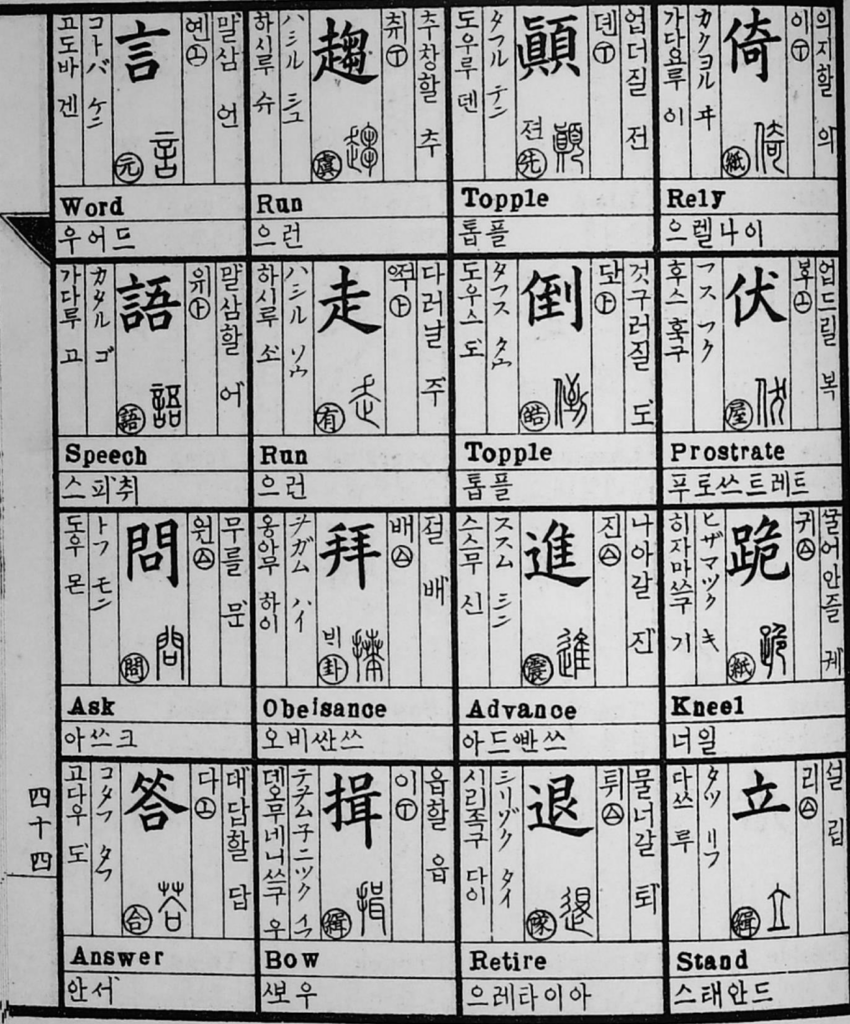 의지할 의
이
倚
紙
カタヨル ヰ
가다요루 이
Rely
으렐나이
업드릴 복
伏
屋
フス フク
후스 혹구
Prostrate
푸로쓰트레트
꿀어안즐 궤
귀
跪
紙
ヒザマヅク キ
히자마쓰구 기
Kneel
너일
설 립
리
立
緝
タツ リフ
다쓰 루
Stand
스태안드
업더질 전
뎬
顚
젼
先
タフル テン
도우루 덴
Topple
톱플
것구러질 도
倒
皓
タフス タウ
도우스 도
Topple
톱플
나아갈 진
진
進
震
ススム シン
스스무 신
Advance
아드빤쓰
물너갈 퇴
튀
退
隊
シリゾク タイ
시리족구 다이
Retire
으레타이아
추창할 추
취
趨
虞
ハシル シュ
하시루 슈
Run
으런
다러날 주
走
有
ハシル ソウ
하시루 소
Run
으런
절 배
배
拜
卦
ヲガム ハイ
옹아무 하이
Obeisance
오비싼쓰
읍할 읍
이
揖
緝
Bow
쏘우
말삼 언
옌
言
元
コトバ ゲン
고도바 겐
Word
우어드
말삼할 어
유
語
語
カタル ゴ
가다루 고
Speech
스피취
무를 문
원
問
問
トフ モン
도우 몬
Ask
아쓰크
대답할 답
다
答
合
コタフ タフ
고다우 도
Answer
안서
四十四